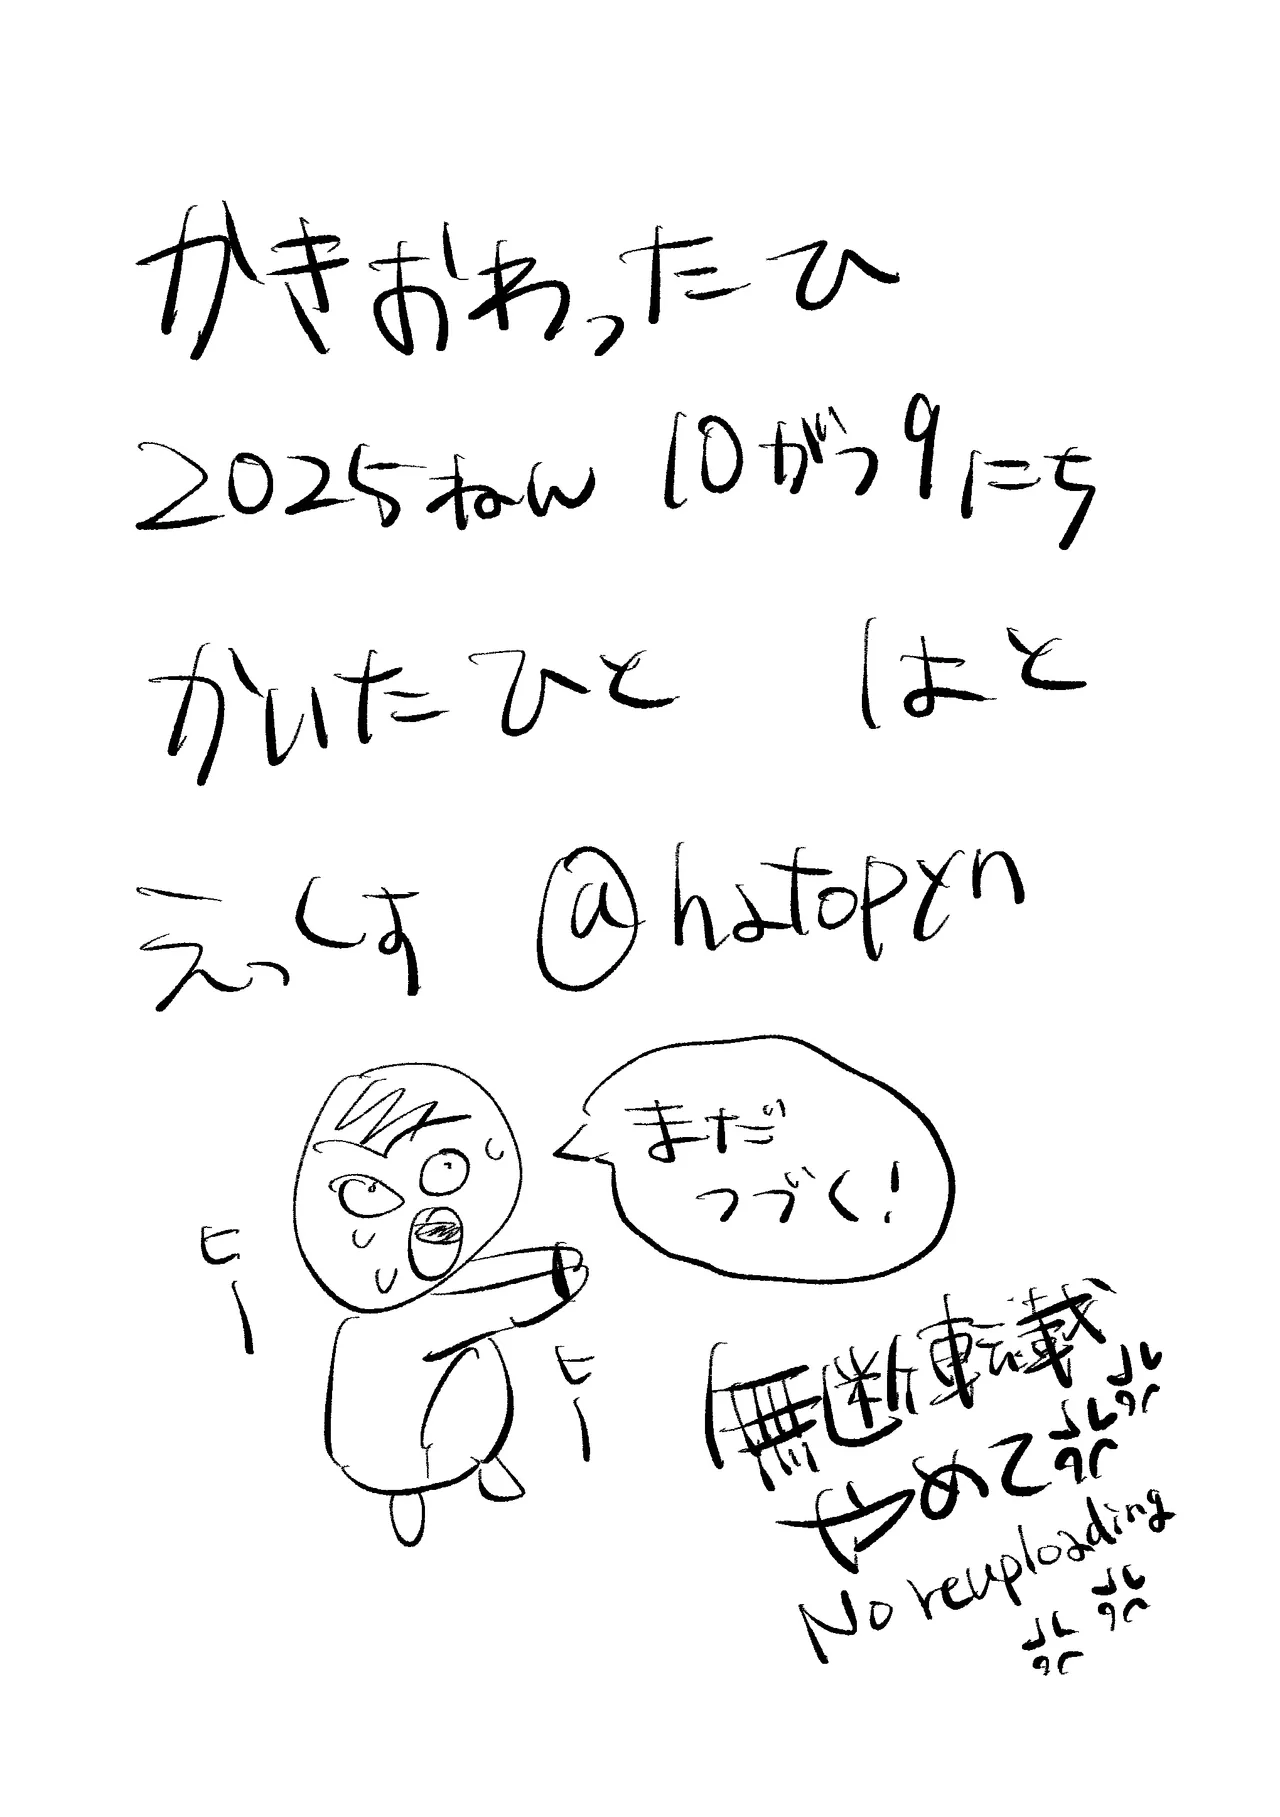 かきおわったひ
2025ねん 10がつ9にち
かいたひと はと
えっくす @hatopyn
まだ
つづく!
ヒー
ヒー
無断転載
やめて
No reuploading